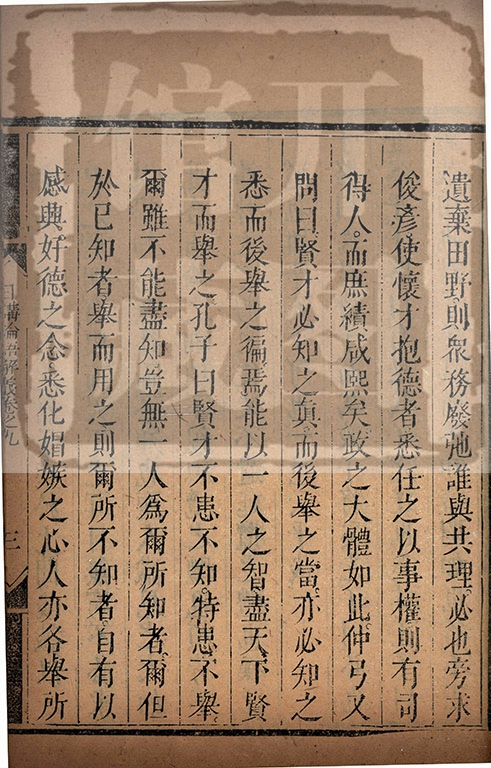 遺棄田野則衆務廢弛誰與共理必也旁求
俊彦使懷才抱德者悉任之以事權則有司
得人而庶績咸熙矣政之大體如此仲弓又
問曰賢才必知之真而後舉之當亦必知之
悉而後舉之徧焉能以一人之智盡天下賢
才而舉之孔子曰賢才不患不知特患不舉
爾雖不能盡知豈無一人爲爾所知者爾但
於已知者舉而用之則爾所不知者自有以
感興好德之念悉化媢嫉之心人亦各舉所
日講論語解義卷之九
三